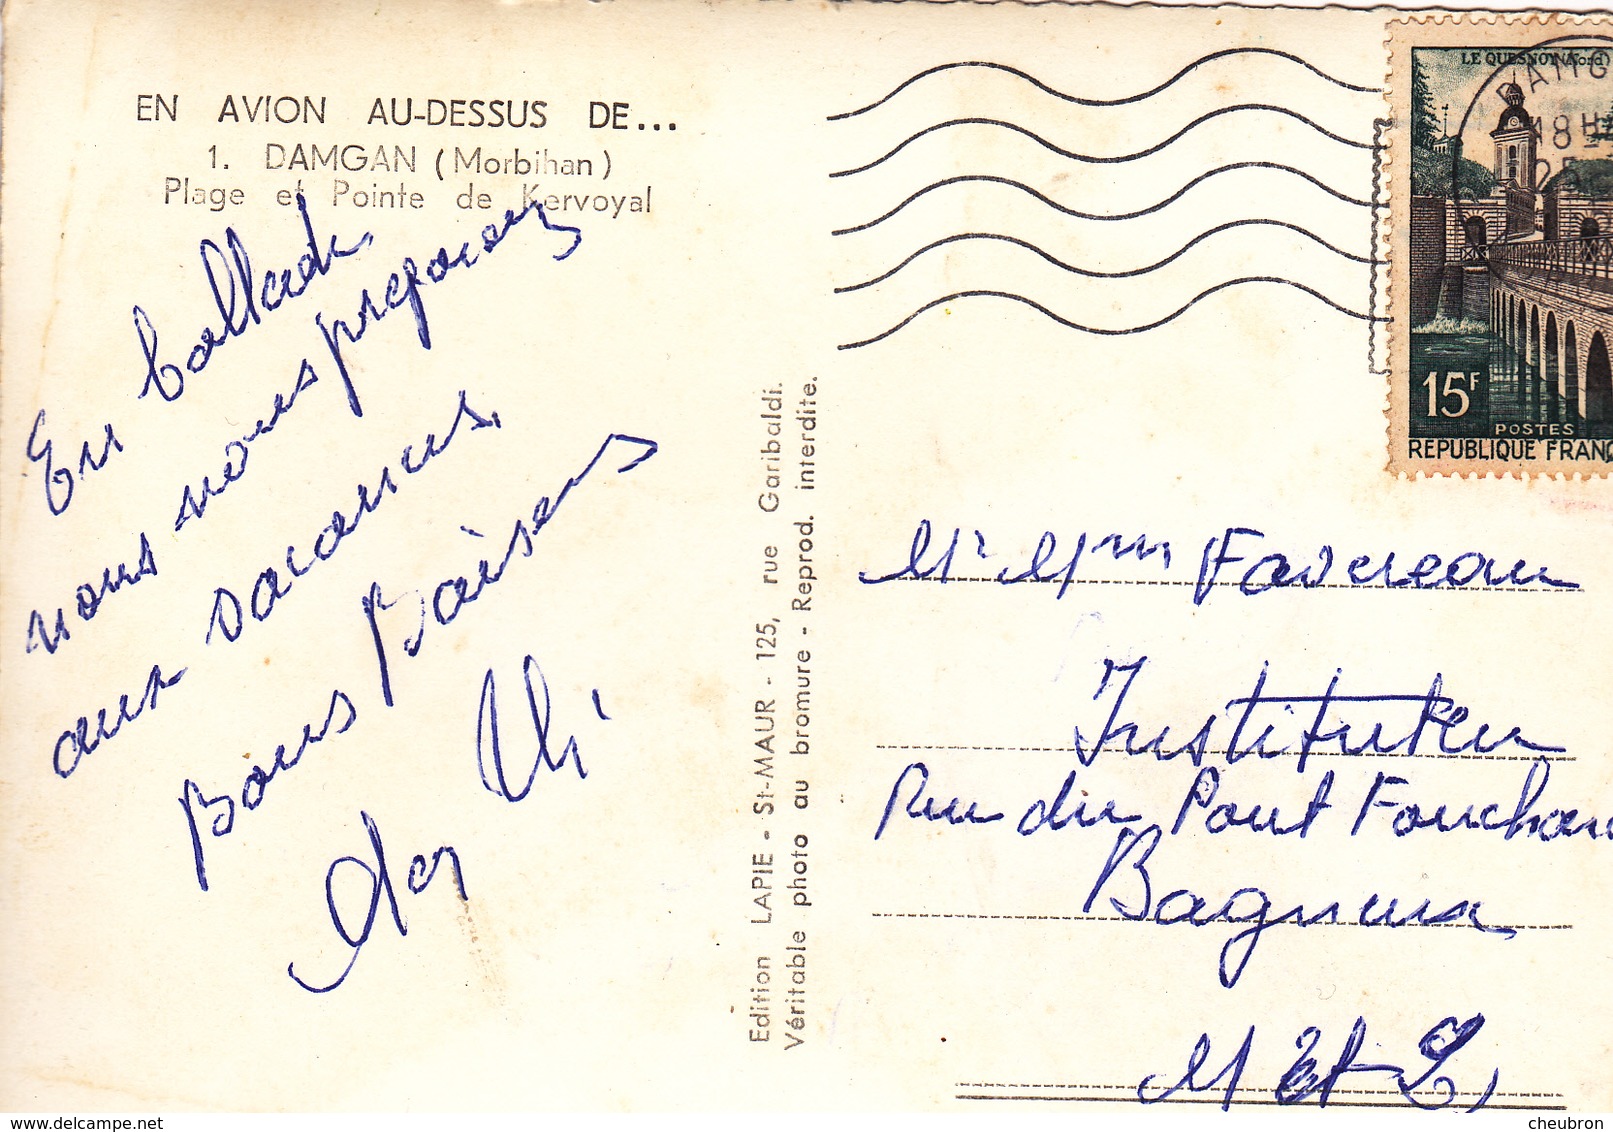 EN AVION AU-DESSUS DE...
1. DAMGAN (Morbihan)
Plage et Pointe de Kervoyal
En ballade
nous nous préparons
aux vacances.
Bons Baisers
Edition LAPIE - St-MAUR - 125, rue Garibaldi.
Véritable photo au bromure - Reprod. interdite.
LE QUESNOY (Nord)
DAMG
18H
25
15F
POSTES
REPUBLIQUE FRANÇ
Mr Mme Favereau
Instituteur
Rue du Pont Fouchar
Bagneux
M et L
delcampe.net
cheubron